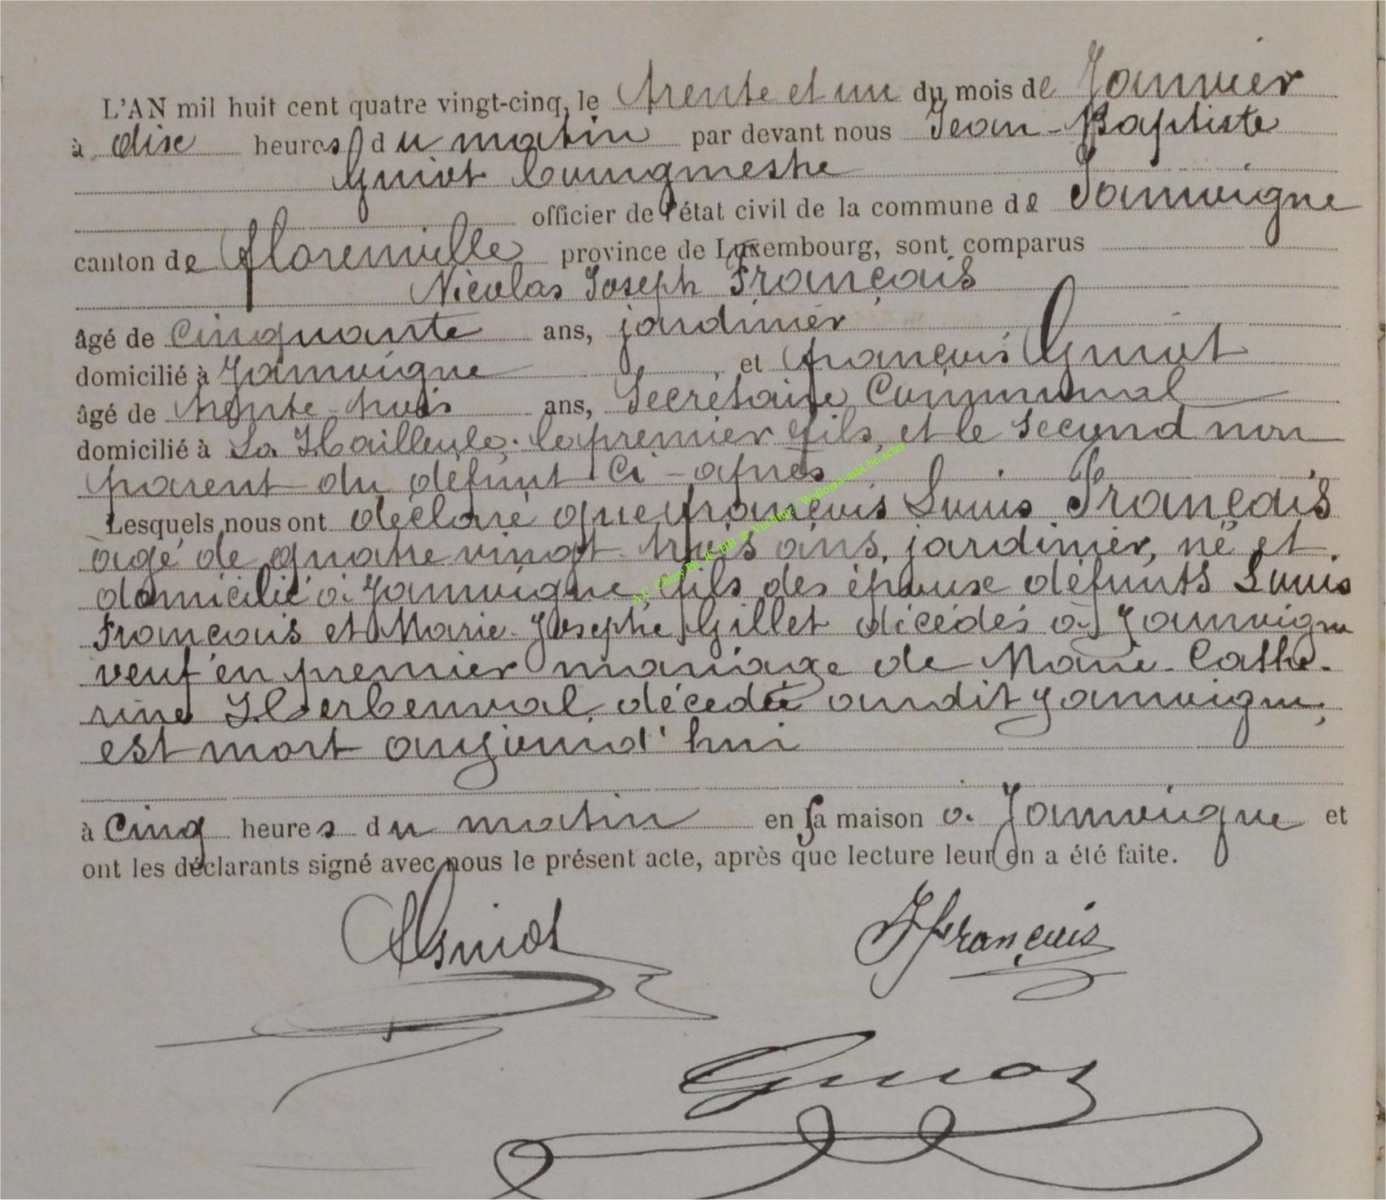 L'AN mil huit cent quatre vingt-cinq, le trente et un du mois de Janvier
à dix heures du matin par devant nous Jean-Baptiste
Guiot bourgmestre
officier de l'état civil de la commune de Jamoigne
canton de Florenville province de Luxembourg, sont comparus
Nicolas Joseph François
âgé de cinquante ans, jardinier
domicilié à Jamoigne et François Guiot
âgé de trente-trois ans, Secrétaire Communal
domicilié à La Hailleule. le premier fils, et le second non
parent du défunt ci-après
Lesquels nous ont déclaré que François Louis François
agé de quatre vingt trois ans, jardinier, né et
domicilié à Jamoigne, fils des époux défunts Louis
François et Marie-Josephe Gillet décédés à Jamoigne
veuf en premier mariage de Marie-Cathe-
rine Herbenval, décédée audit Jamoigne,
est mort aujourd'hui
à cinq heures du matin en sa maison à Jamoigne et
ont les déclarants signé avec nous le présent acte, après que lecture leur en a été faite.
Guiot JFrançois
Guiot